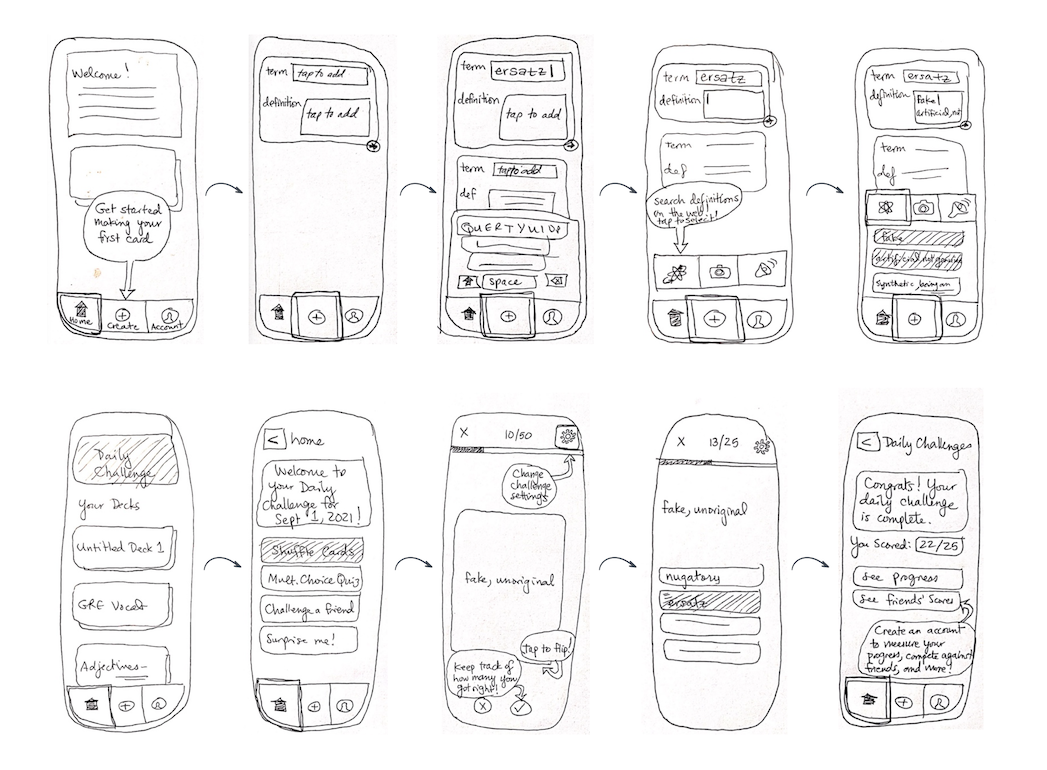 Welcome!
Get started
making your
first card
Home
Create
Account
term
tap to add
definition
tap to add
term
ersatz
definition
tap to add
term
tap to add
def
QUERTYUIOP
space
term
ersatz
definition
term
def
Search definitions
on the web.
tap to select!
term
ersatz
definition
fake
artificial, not
term
def
fake
artificial, not genuine
synthetic, being an
Daily
Challenge
Your Decks
Untitled Deck 1
GRE Vocab
Adjectives-
< home
Welcome to
your Daily
Challenge for
Sept 1, 2021!
Shuffle Cards
Mult. Choice Quiz
Challenge a friend
Surprise me!
X 10/50
Change
challenge
settings
fake, unoriginal
tap to flip!
Keep track of
how many you
got right!
X 13/25
fake, unoriginal
nugatory
ersatz
< Daily Challenges
Congrats! Your
daily challenge
is complete.
You Scored: 22/25
See progress
See friends' scores
Create an account
to measure your
progress, compete against
friends, and more!